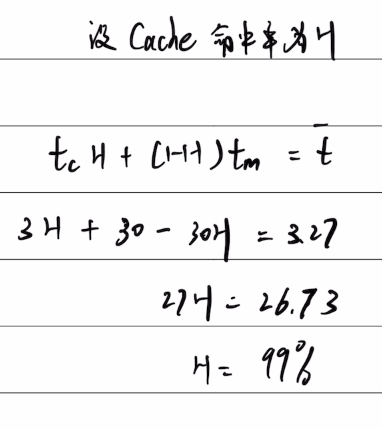 设 Cache 命中率为 H
t_c H + (1-H) t_m = t̄
3H + 30 - 30H = 3.27
27H = 26.73
H = 99%